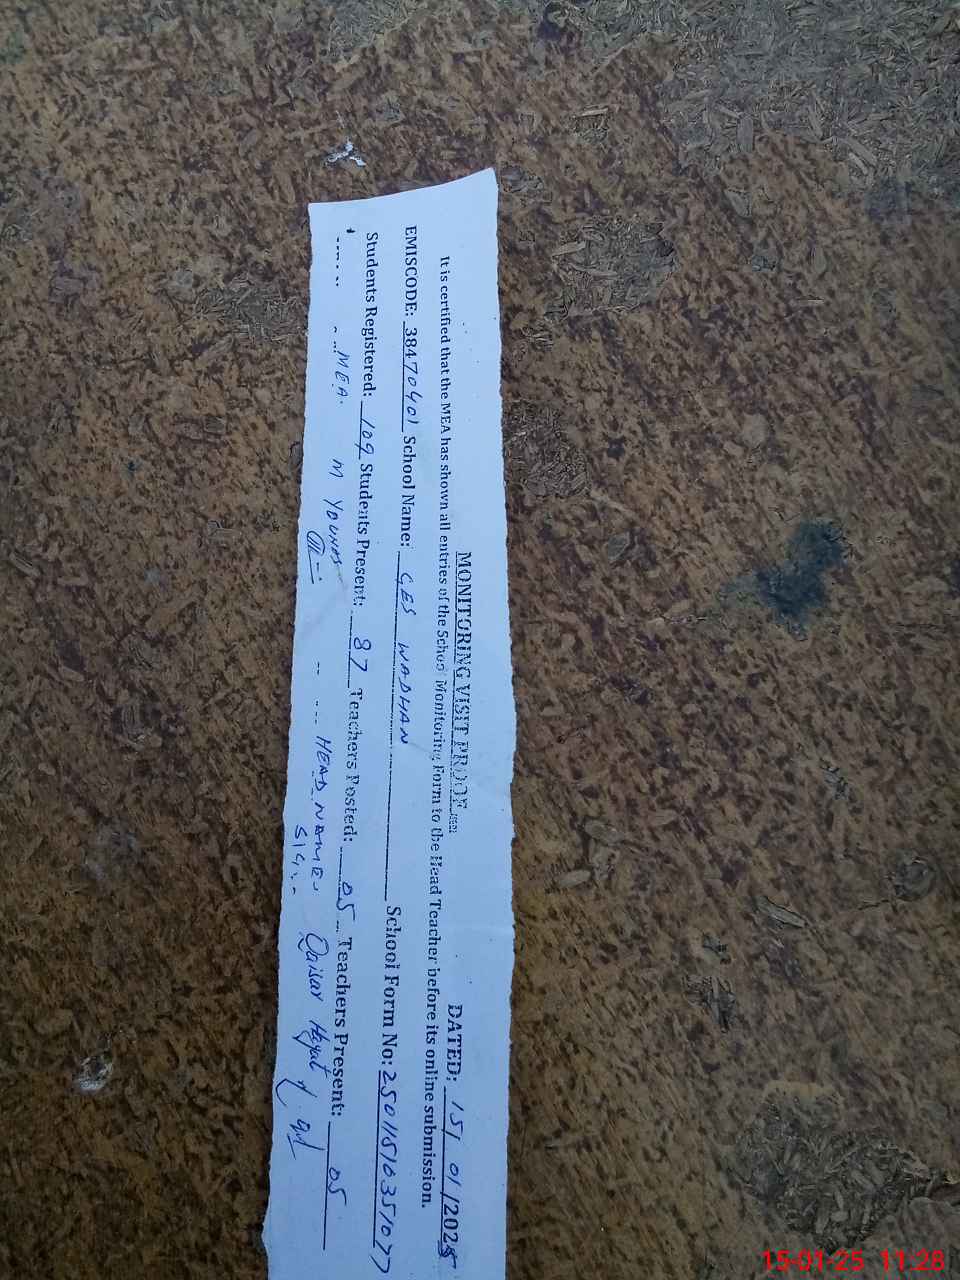 MONITORING VISIT PROOF DATED: 15/01/2025
It is certified that the MEA has shown all entries of the School Monitoring Form to the Head Teacher before its online submission.
EMISCODE: 38470401 School Name: GES WADHAN School Form No: 25011516351077
Students Registered: 109 Students Present: 87 Teachers Posted: 05 Teachers Present: 05
MEA. M YOUNAS HEAD NAME Qaisar Hayat
SIGN
15-01-25 11:28